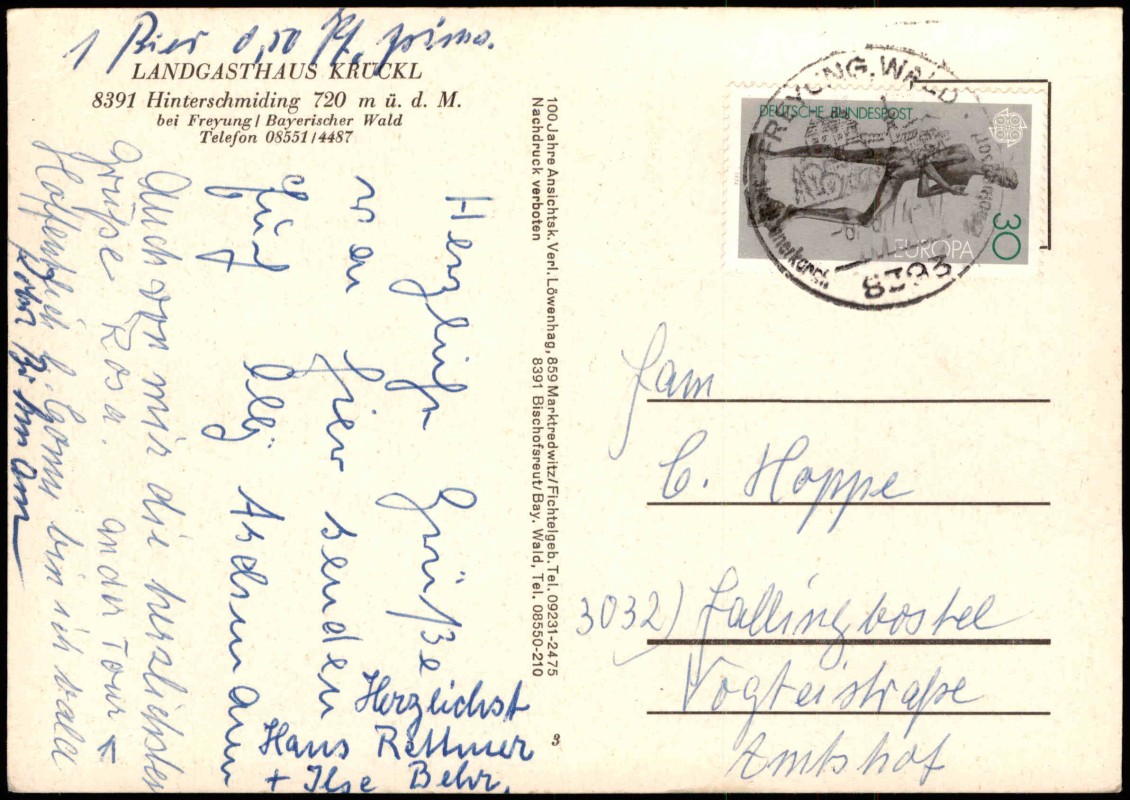 1 Bier 0,50 Pf, prima.
LANDGASTHAUS KRÜCKL
8391 Hinterschmiding 720 m ü. d. M.
bei Freyung / Bayerischer Wald
Telefon 08551/4487
Herzliche Grüße
von hier senden
für
Herzlichst
Hans Rettmer
+ Ilse Behr.
Auch von mir die herzlichsten
Grüße Rosa.
Hoffentlich bin ich
100 Jahre Ansichtsk. Verl. Löwenhag, 859 Marktredwitz/Fichtelgeb. Tel. 09231-2475
Nachdruck verboten 8391 Bischofsreut/Bay. Wald, Tel. 08550-210
DEUTSCHE BUNDESPOST
EUROPA
30
FREYUNG, WALD
8393
Fam
C. Hoppe
3032) Fallingbostel
Vogteistraße
Amtshof